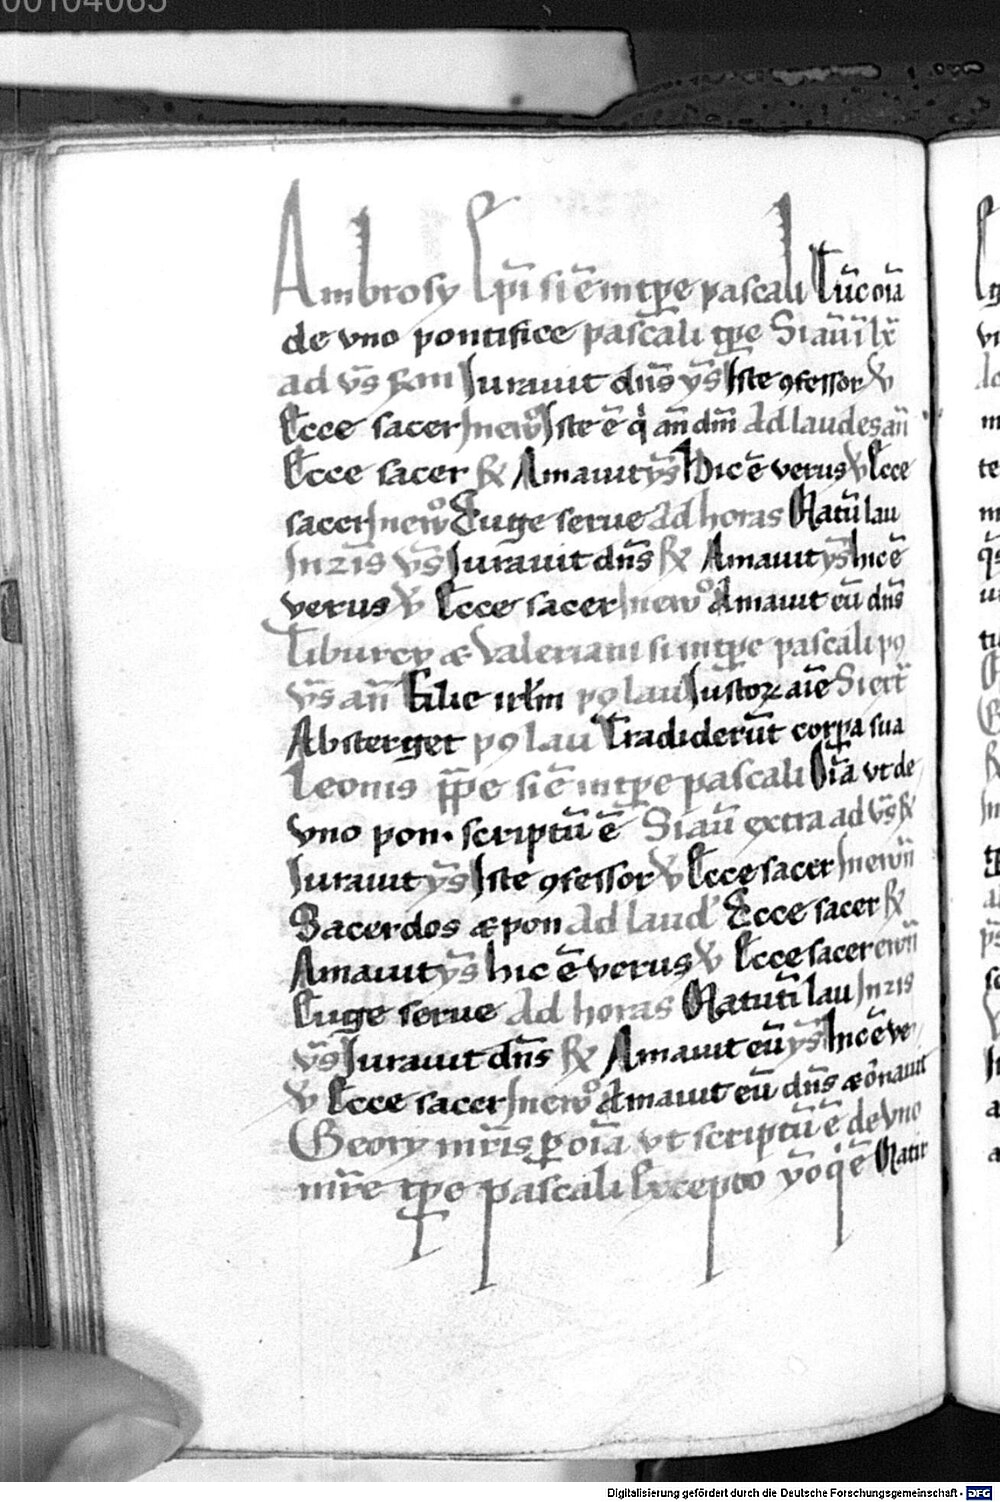 00104065
Ambrosy Epĩ si ẽ in tpe pascali Tũc oĩa
de vno pontifice pascali tpe Si aũ
ad vs̃ Iurauit dñs ys̃ Iste 9fessor ꝟ
Ecce sacer Inewo Iste ẽ q̇ añ dm̃ Ad laudes añ
Ecce sacer ℟ Amauit ys̃ Hic ẽ verus ꝟ Ecce
sacer Inewo Euge serue Ad horas Matũ lau
In z is vs̃ Iurauit dñs ℟ Amauit ys̃ hic ẽ
verus ꝟ Ecce sacer Inewo Amauit eũ dñs
Tiburcy & Valeriani si in tpe pascali po
vs̃ añ Filie irłm po lau Iustoꝝ aĩe Si
Absterget po lau Tradiderũt corpa sua
Leonis ppe si ẽ in tpe pascali Oĩa vt de
vno pon. scriptũ ẽ Si aũ extra ad vs̃ ℟
Iurauit ys̃ Iste 9fessor ꝟ Ecce sacer
Sacerdos & pon Ad laud' Ecce sacer ℟
Amauit ys̃ hic ẽ verus ꝟ Ecce sacer
Euge serue Ad horas Matutĩ lau In z is
vs̃ Iurauit dñs ℟ Amauit eũ ys̃ hic ẽ ve
ꝟ Ecce sacer Inewo Amauit eũ dñs & õnauit
Geory mr̃is ꝑ oĩa vt scriptũ ẽ de vno
mr̃e tpe pascali Excepto ẽ Matu
Digitalisierung gefördert durch die Deutsche Forschungsgemeinschaft - DFG